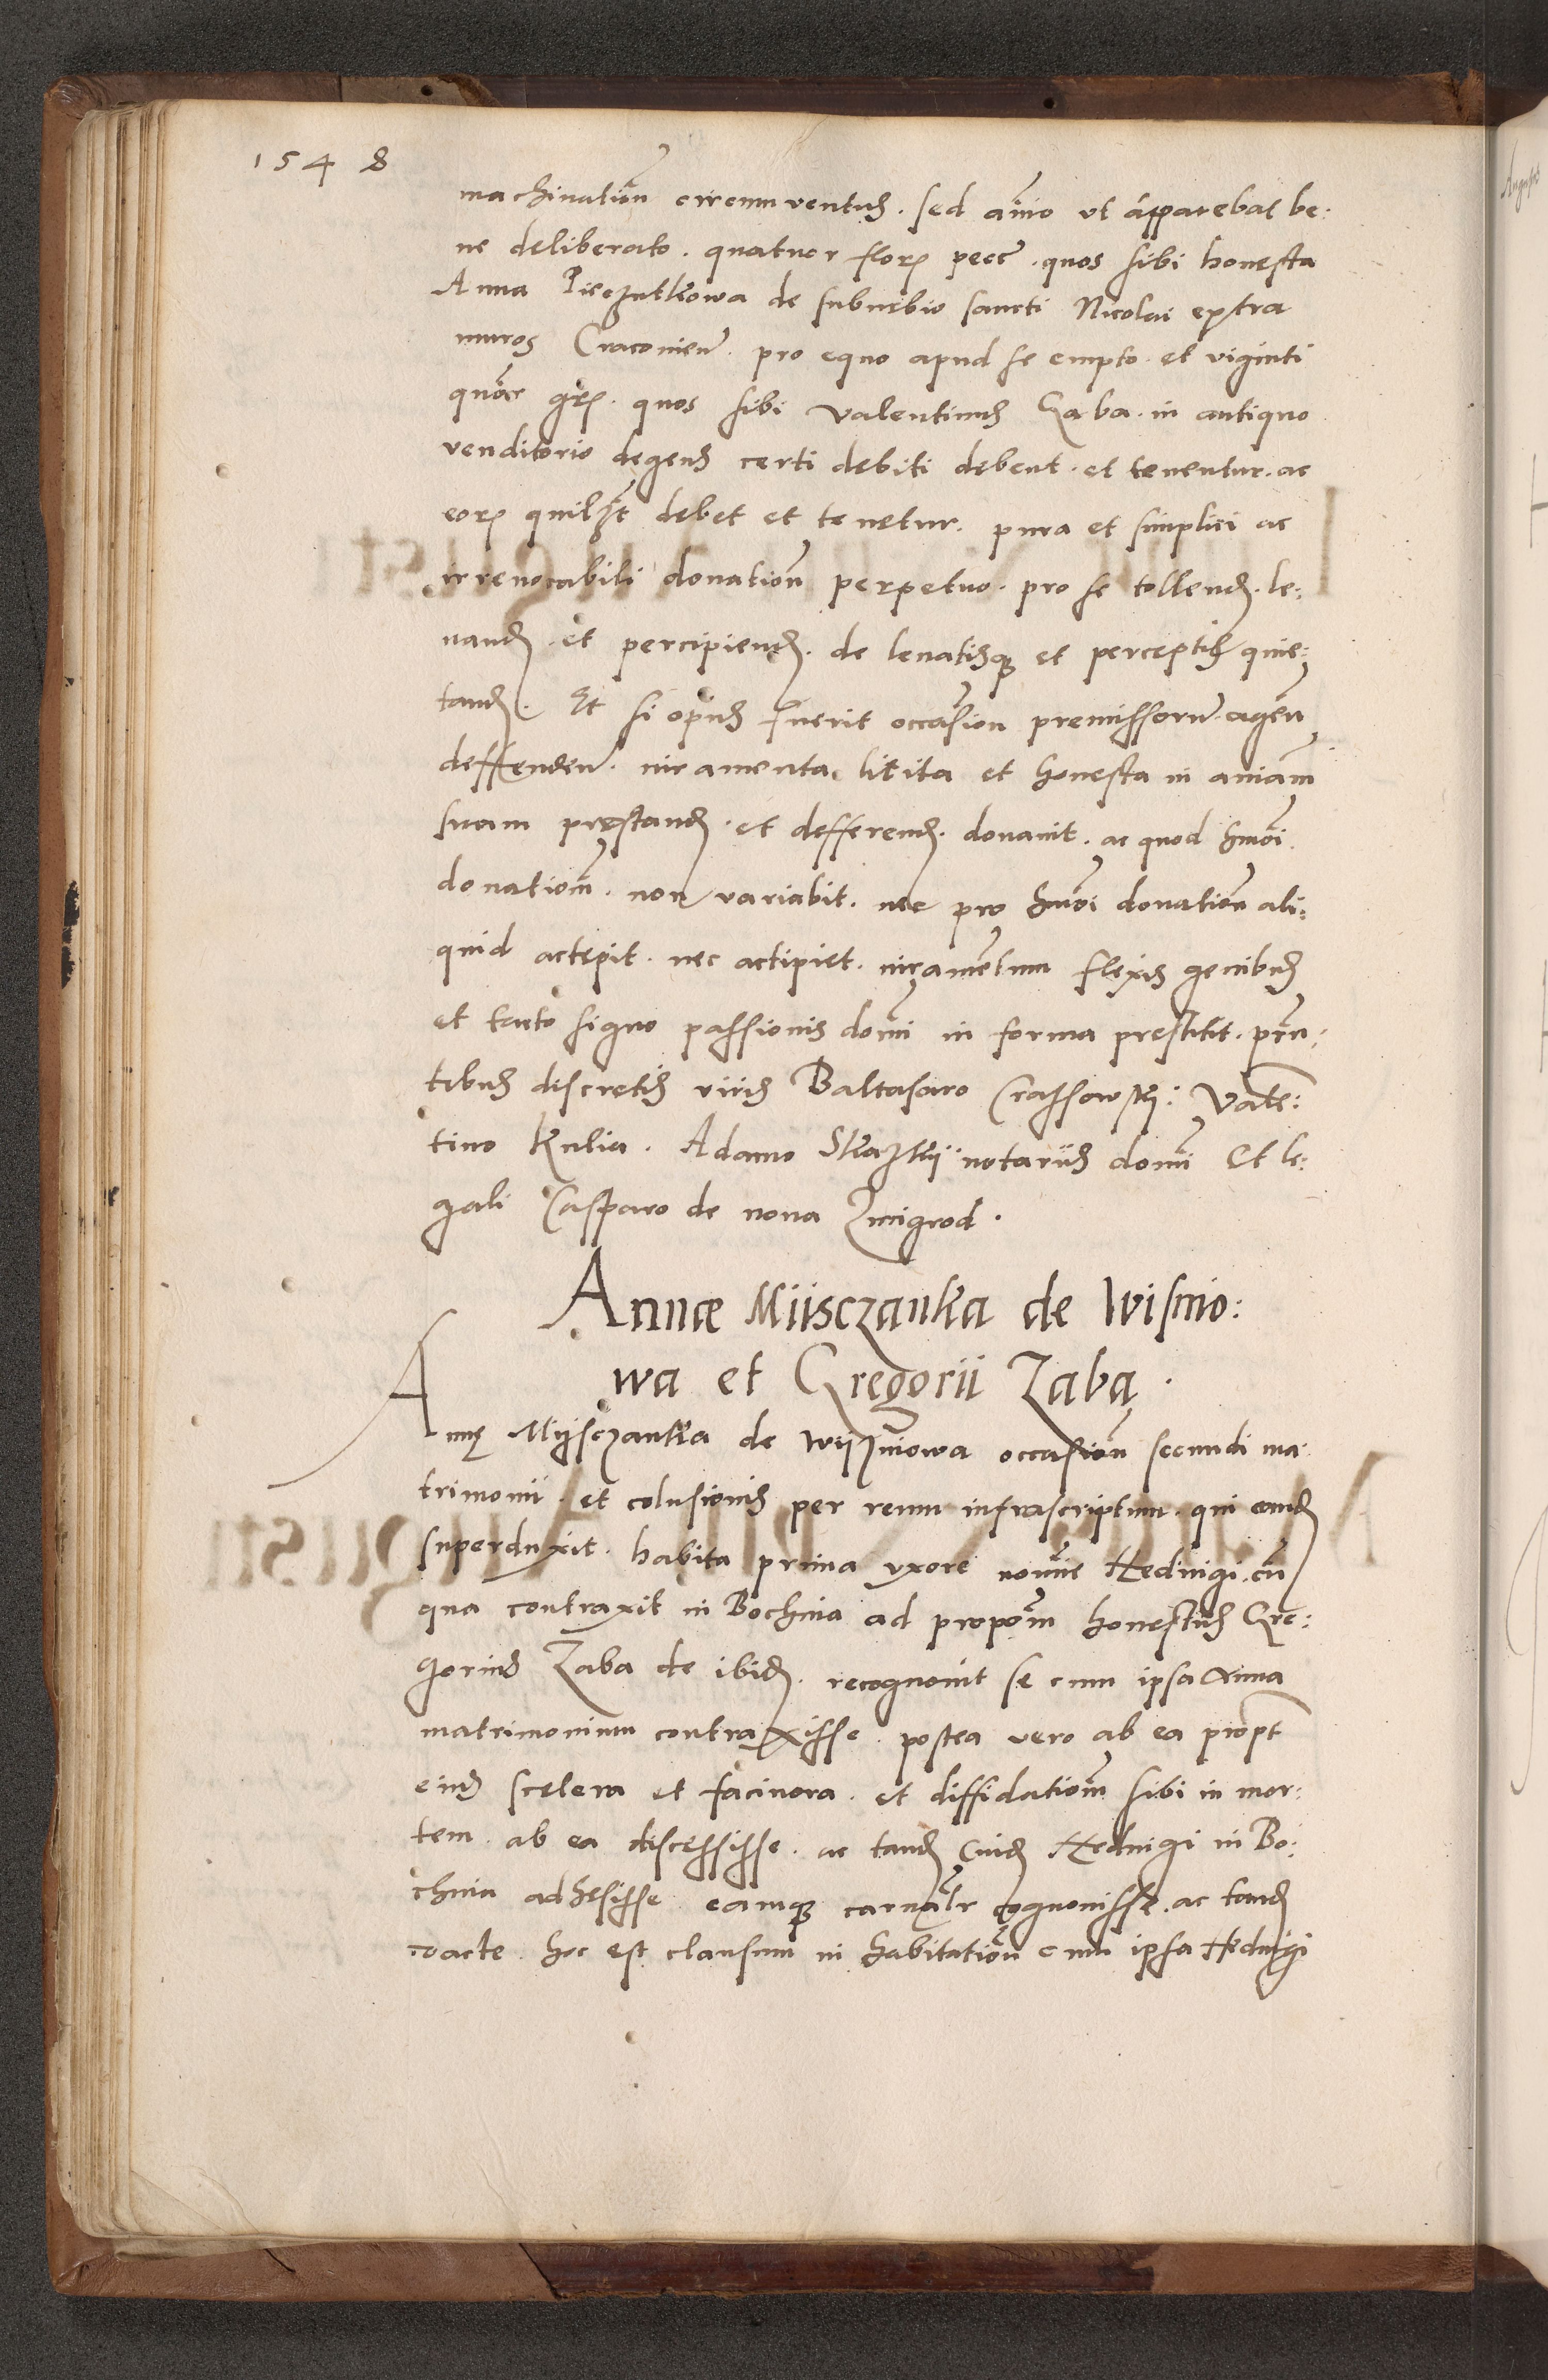 1548
machinationē circumventus. sed aīmo ut apparebat be:
ne deliberato. quatuor florꝫ pecc̄. quos sibi honesta
Anna Pieczulkowa de suburbio sancti Nicolai extra
muros Cracovien̄. pro equo apud se empto. et viginti
quōr grꝫ. quos sibi Valentinus Gaba. in antiquo
venditorio degens certi debiti debent. et tenentur. ac
eorꝫ quilibꝫt debet et tenetur. pura et simplici ac
irrevocabili donationē perpetuo. pro se tollendꝫ. le:
vandꝫ. et percipiendꝫ. de levatisqꝫ et perceptis quie:
tandꝫ. Et si opus fuerit occasionē premissorum. agēn
deffendēn. iuramenta licita et honesta in aniām
suam prestandꝫ. et defferendꝫ. donavit. ac quod hmōi
donationē. non variabit. nec pro hmōi donationē ali:
quid accepit. nec accipiet. iuramentum flexis genibus
et tacto signo passionis domi in forma prestitit. prn̄:
tibus discretis viris Baltasaro Crassowskÿ: Valē:
tino Kulia. Adamo Skazkÿ notariis domi Et le:
gali Casparo de nova Zmigrod.
Annæ Miisczanka de Wisnio:
wa et Gregorii Zabą.
Annę Mÿsczanka de Wÿzniowa occasionē secundi ma:
trimonii. et colusionis per reum infrascriptum. qui eandꝫ
superduxit. habita prima uxore nomīe Hedvigi. cū
qua contraxit in Bochnia ad propōm honestus Gre:
gorius Zaba de ibidꝫ. recognovit se cum ipsa Anna
matrimonium contraxisse. postea vero ab ea propt̄
eius scelera et facinora. et diffidationē sibi in mor:
tem. ab ea discessisse. ac tandꝫ cuidꝫ Hedvigi in Bo:
chnia adhesisse eamqꝫ carnalr̄ cognovisse. ac tandꝫ
coacte. hoc est clausum in habitationē cum ipsa Hedvigi